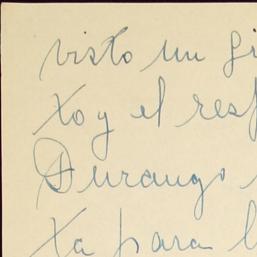 visto un
to y el
Durango
ta para